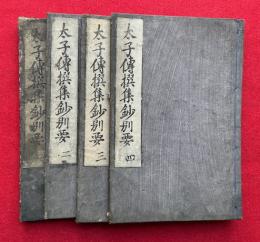 太子傳撰集鈔別要 四
太子傳撰集鈔別要 三
太子傳撰集鈔別要 二
太子傳撰集鈔別要